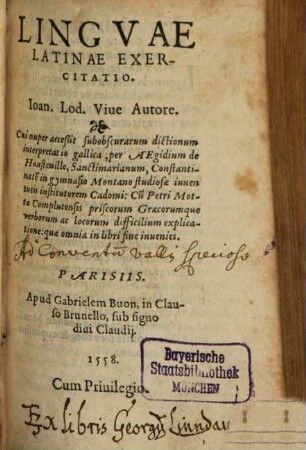 LINGVAE
LATINAE EXER-
CITATIO.
Ioan. Lod. Viue Autore.
Cui nuper accessit subobscurarum dictionum
interpretatio gallica, per AEgidium de
Housteuille, Sanctimarianum, Constanti-
natē in gymnasio Montano studiosæ iuuen
tutis institutorem Cadomi: Cū Petri Mot-
te Complutensis priscorum Græcorumque
verborum ac locorum difficilium explica-
tione: quæ omnia in libri fine inuenies.
Ad Conventū vallis speciosæ
PARISIIS.
Apud Gabrielem Buon, in Clau-
so Brunello, sub signo
diui Claudij.
1558.
Cum Priuilegio.
Bayerische
Staatsbibliothek
MÜNCHEN
Ex libris Georgij